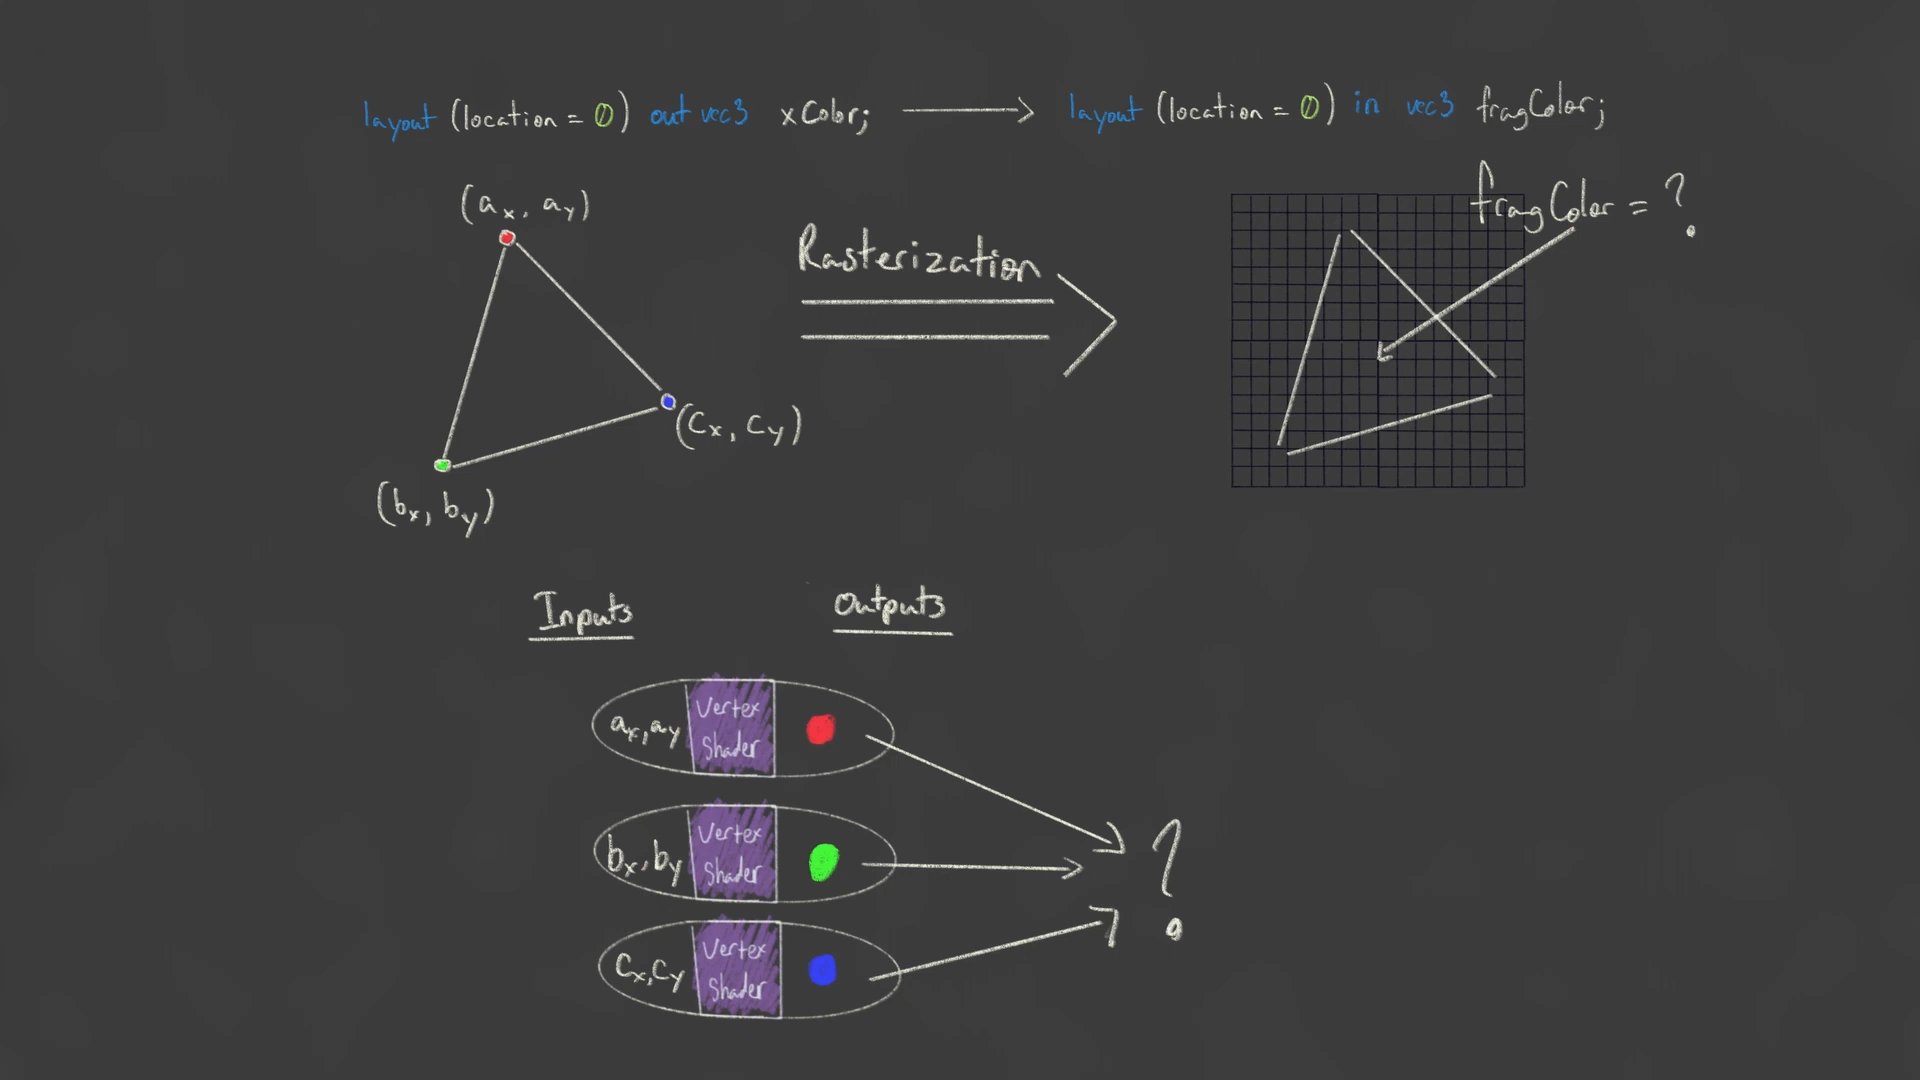 layout (location = 0) out vec3 xColor;
layout (location = 0) in vec3 fragColor;
(ax, ay)
(bx, by)
(cx, cy)
Rasterization
fragColor = ?
Inputs
Outputs
ax, ay
Vertex
Shader
bx, by
Vertex
Shader
cx, cy
Vertex
Shader
?